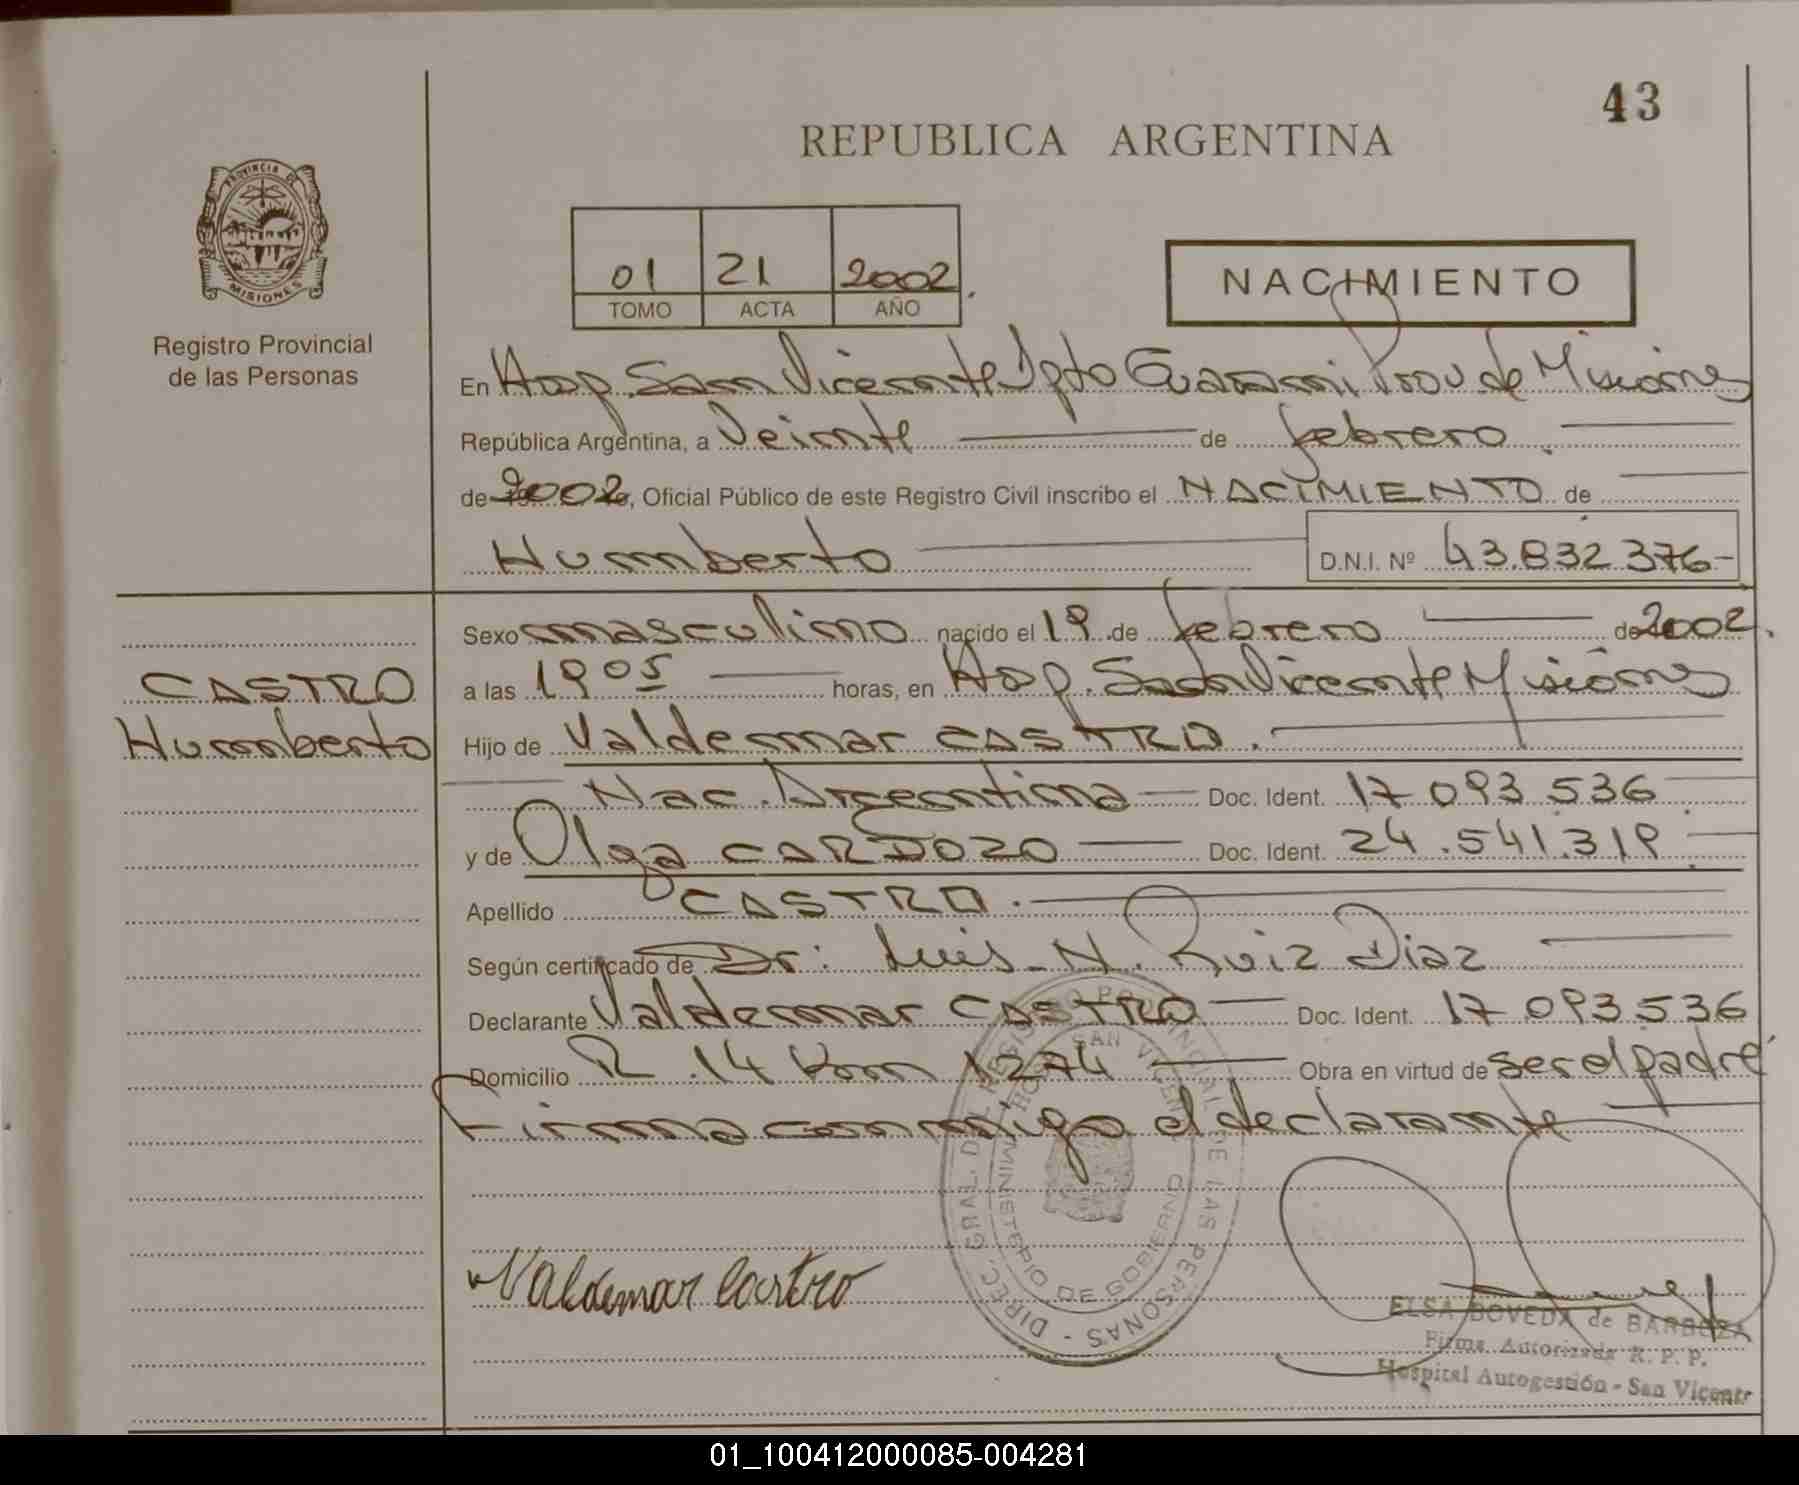 43
REPUBLICA ARGENTINA
PROVINCIA DE
MISIONES
Registro Provincial
de las Personas
01 21 2002.
TOMO ACTA AÑO
NACIMIENTO
En Hosp. San Vicente Dpto Guarani Prov de Misiones
República Argentina, a Veinte de febrero.
de 2002, Oficial Público de este Registro Civil inscribo el NACIMIENTO de
Humberto D.N.I. Nº 43.832 376-
Sexo masculino nacido el 19 de febrero de 2002.
CASTRO
Humberto
a las 19 05 horas, en Hosp. San Vicente Misiones
Hijo de Valdemar CASTRO.
Nac. Argentina Doc. Ident. 17 093 536
y de Olga CARDOZO Doc. Ident. 24.541.319
Apellido CASTRO.
Según certificado de Dr: Luis N. Ruiz Diaz
Declarante Valdemar CASTRO Doc. Ident. 17 093 536
Domicilio R. 14 Km 1274 Obra en virtud de ser el padre
Firma conmigo el declarante
DIREC. GRAL. DEL REGISTRO PROVINCIAL DE LAS PERSONAS -
MINISTERIO DE GOBIERNO
Valdemar Castro
ELSA BOVEDA de BARBOZA
Firma Autorizada R. P. P.
Hospital Autogestión - San Vicente
01_100412000085-004281